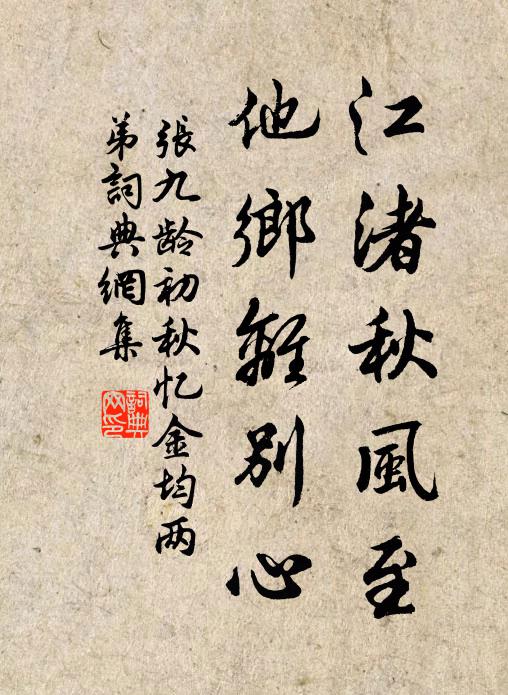 江渚秋風至
他鄉離別心
張九龄初秋忆金均两
弟詞典網集
詞典網印